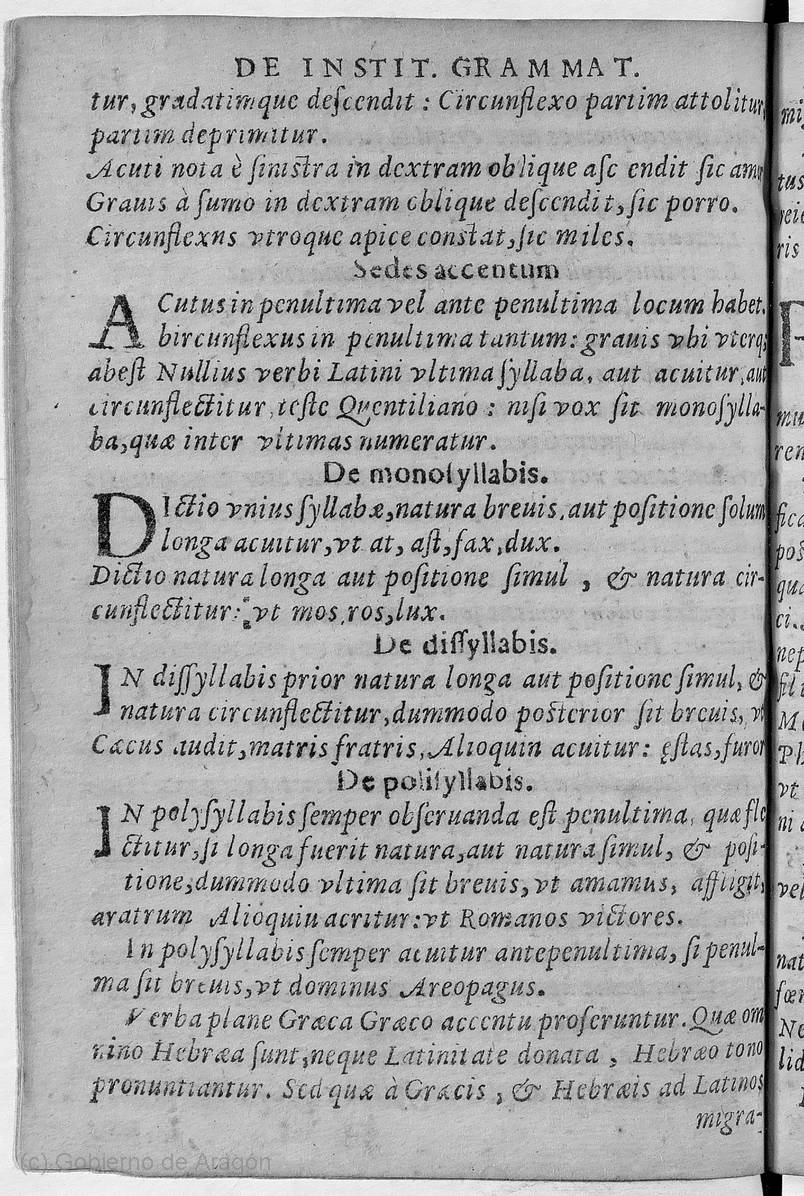 DE INSTIT. GRAMMAT.
tur, gradatimque deſcendit : Circunflexo partim attolitur,
partim deprimitur.
Acuti nota è ſiniſtra in dextram oblique aſc endit ſic amo
Grauis à ſumo in dextram oblique deſcendit, ſic porro.
Circunflexns vtroque apice conſtat, ſic miles.
Sedes accentum
ACutus in penultima vel ante penultima locum habet.
bircunflexus in penultima tantum: grauis vbi vterq;
abeſt Nullius verbi Latini vltima ſyllaba, aut acuitur, aut
circunflectitur, teſte Quentiliano : niſi vox ſit monoſylla-
ba, quæ inter vltimas numeratur.
De monoſyllabis.
DIctio vnius ſyllabæ, natura breuis, aut poſitione ſolum
longa acuitur, vt at, aſt, fax, dux.
Dictio natura longa aut poſitione ſimul , & natura cir-
cunflectitur: vt mos, ros, lux.
De diſſyllabis.
IN diſſyllabis prior natura longa aut poſitione ſimul, &
natura circunflectitur, dummodo poſterior ſit breuis, vt
Cæcus audit, matris fratris, Alioquin acuitur: ęſtas, furor
De poliſyllabis.
IN polyſyllabis ſemper obſeruanda eſt penultima, quæ fle
ctitur, ſi longa fuerit natura, aut natura ſimul, & poſi-
tione, dummodo vltima ſit breuis, vt amamus, affligit,
aratrum Alioquiu acritur: vt Romanos victores.
In polyſyllabis ſemper acuitur antepenultima, ſi penul-
ma ſit breuis, vt dominus Areopagus.
Verba plane Græca Græco accentu proferuntur. Quæ om
nino Hebræa ſunt, neque Latinitate donata , Hebræo tono
pronuntiantur. Sed quæ à Græcis , & Hebræis ad Latinos
migra-
(c) Gobierno de Aragón